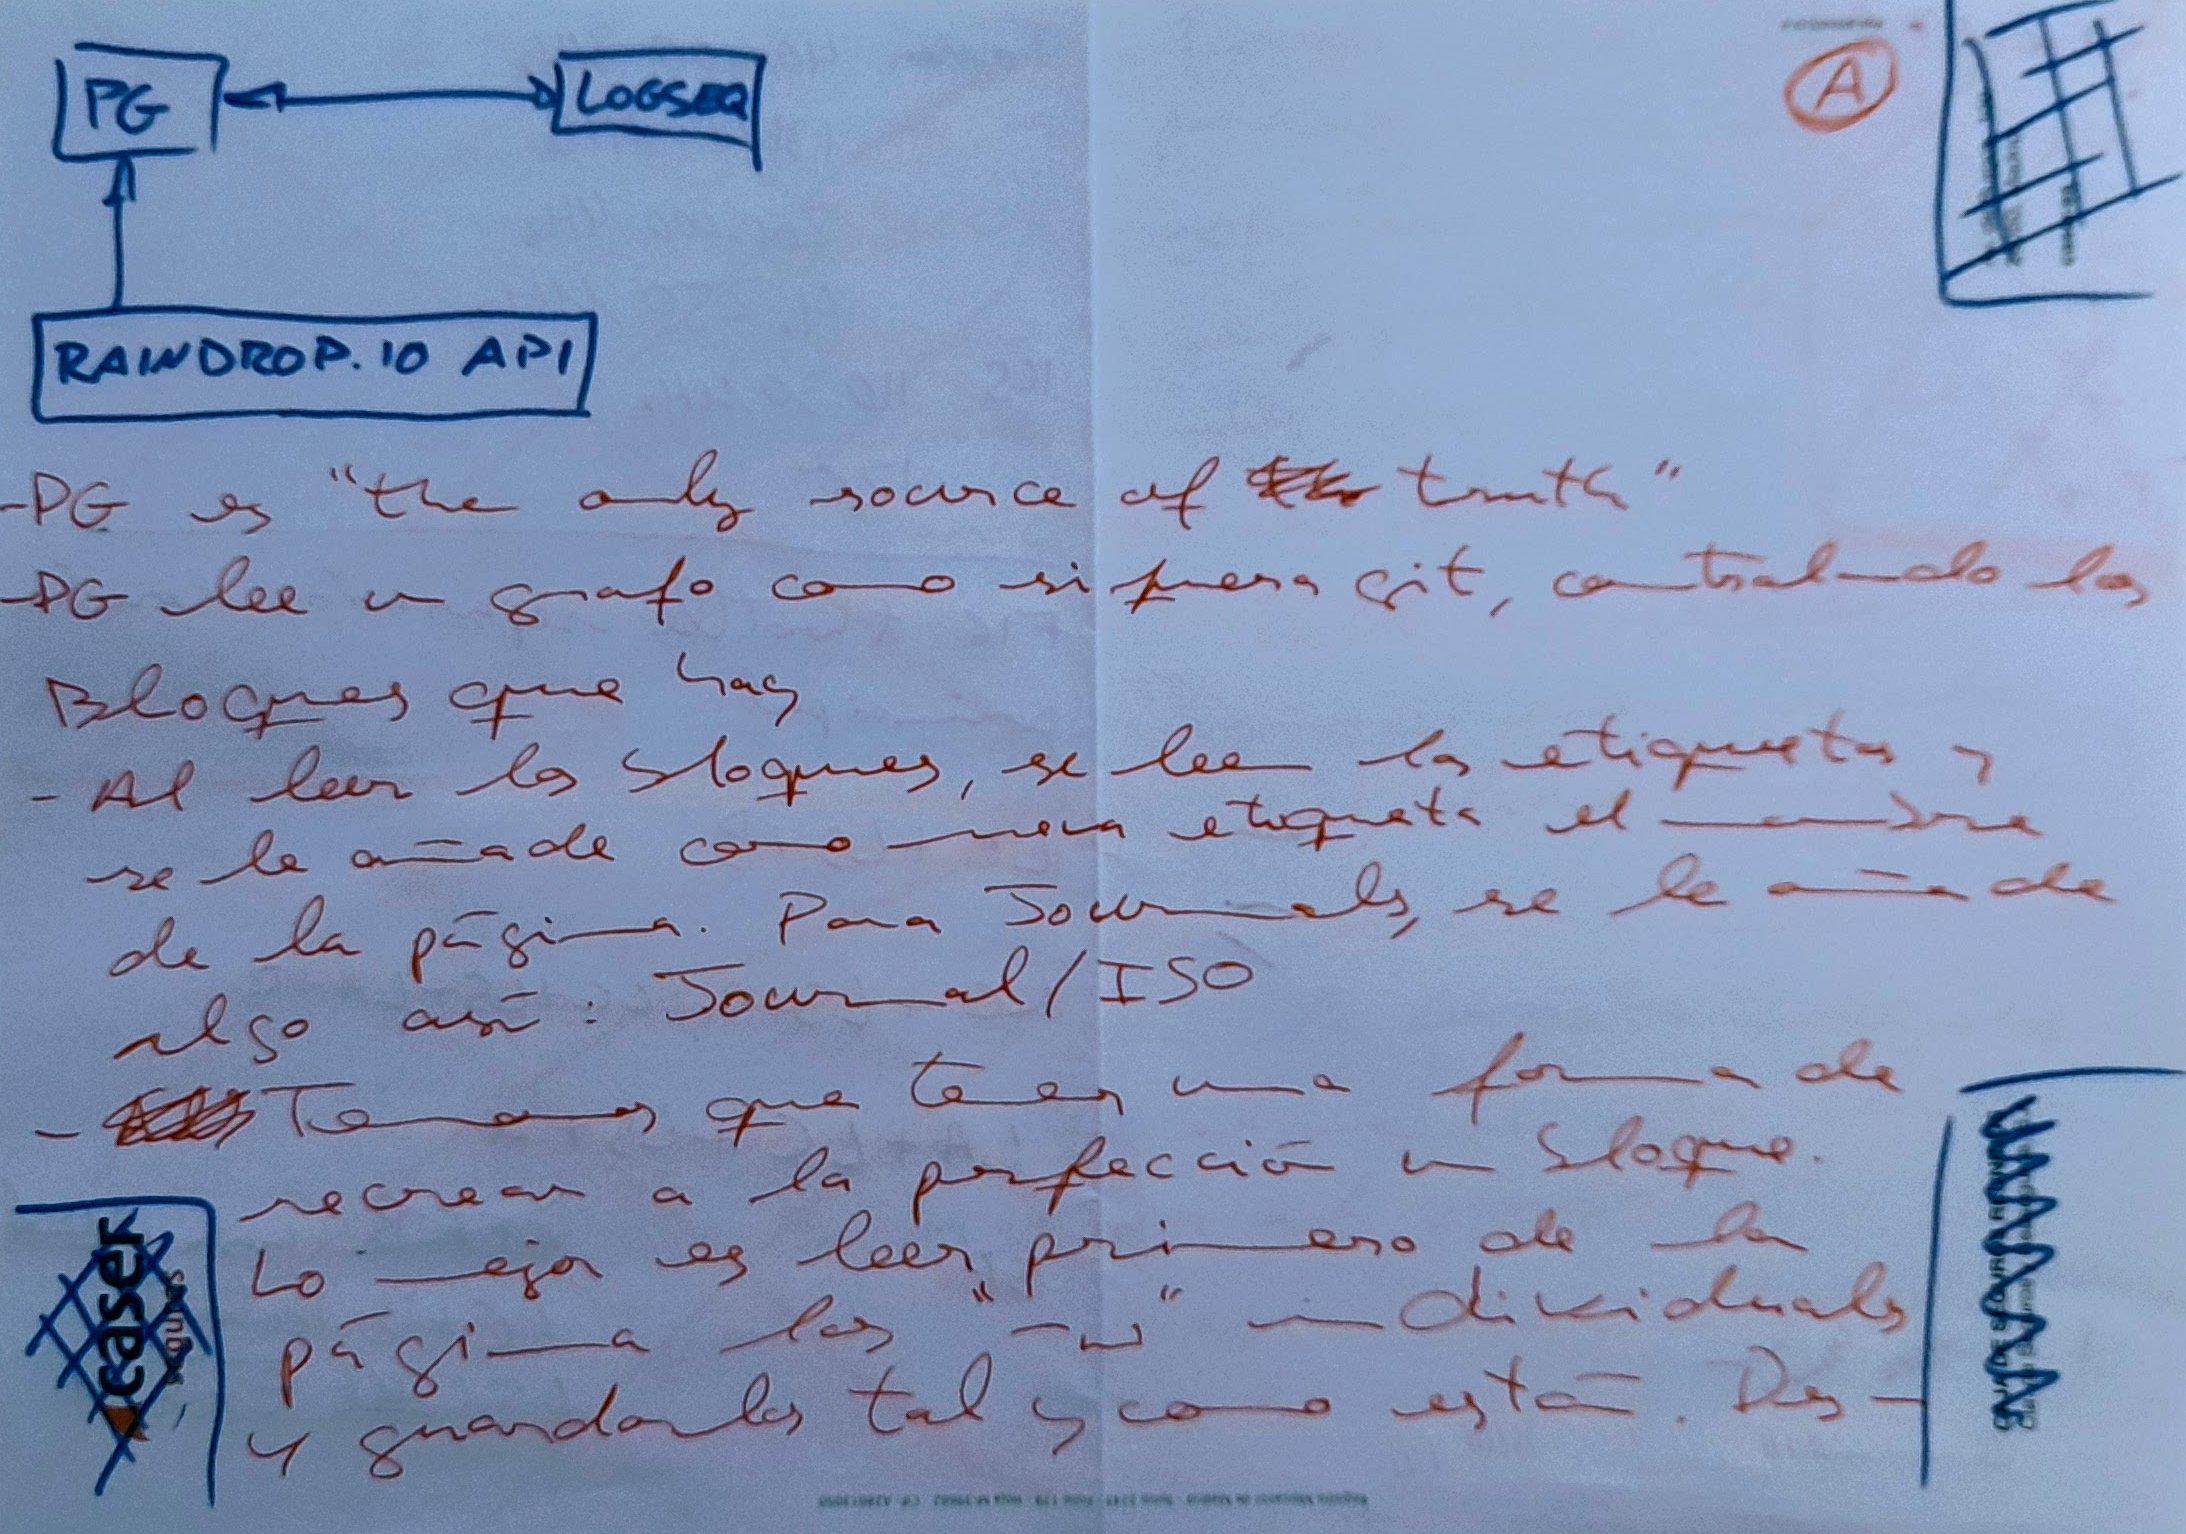 PG
LOGSEQ
A
RAINDROP.IO API
-PG es "the only source of truth"
-PG lee un grafo como si fuera git, controlando los
Bloques que hay
- Al leer los bloques, se leen las etiquetas y
se le añade como nueva etiqueta el nombre
de la página. Para Journals, se le añade
algo así: Journal/ISO
- Tenemos que tener una forma de
recrear a la perfección un bloque.
Lo mejor es leer primero de la
página los "-\n" individuales
y guardarlos tal y como están. Des-
caser
seguros